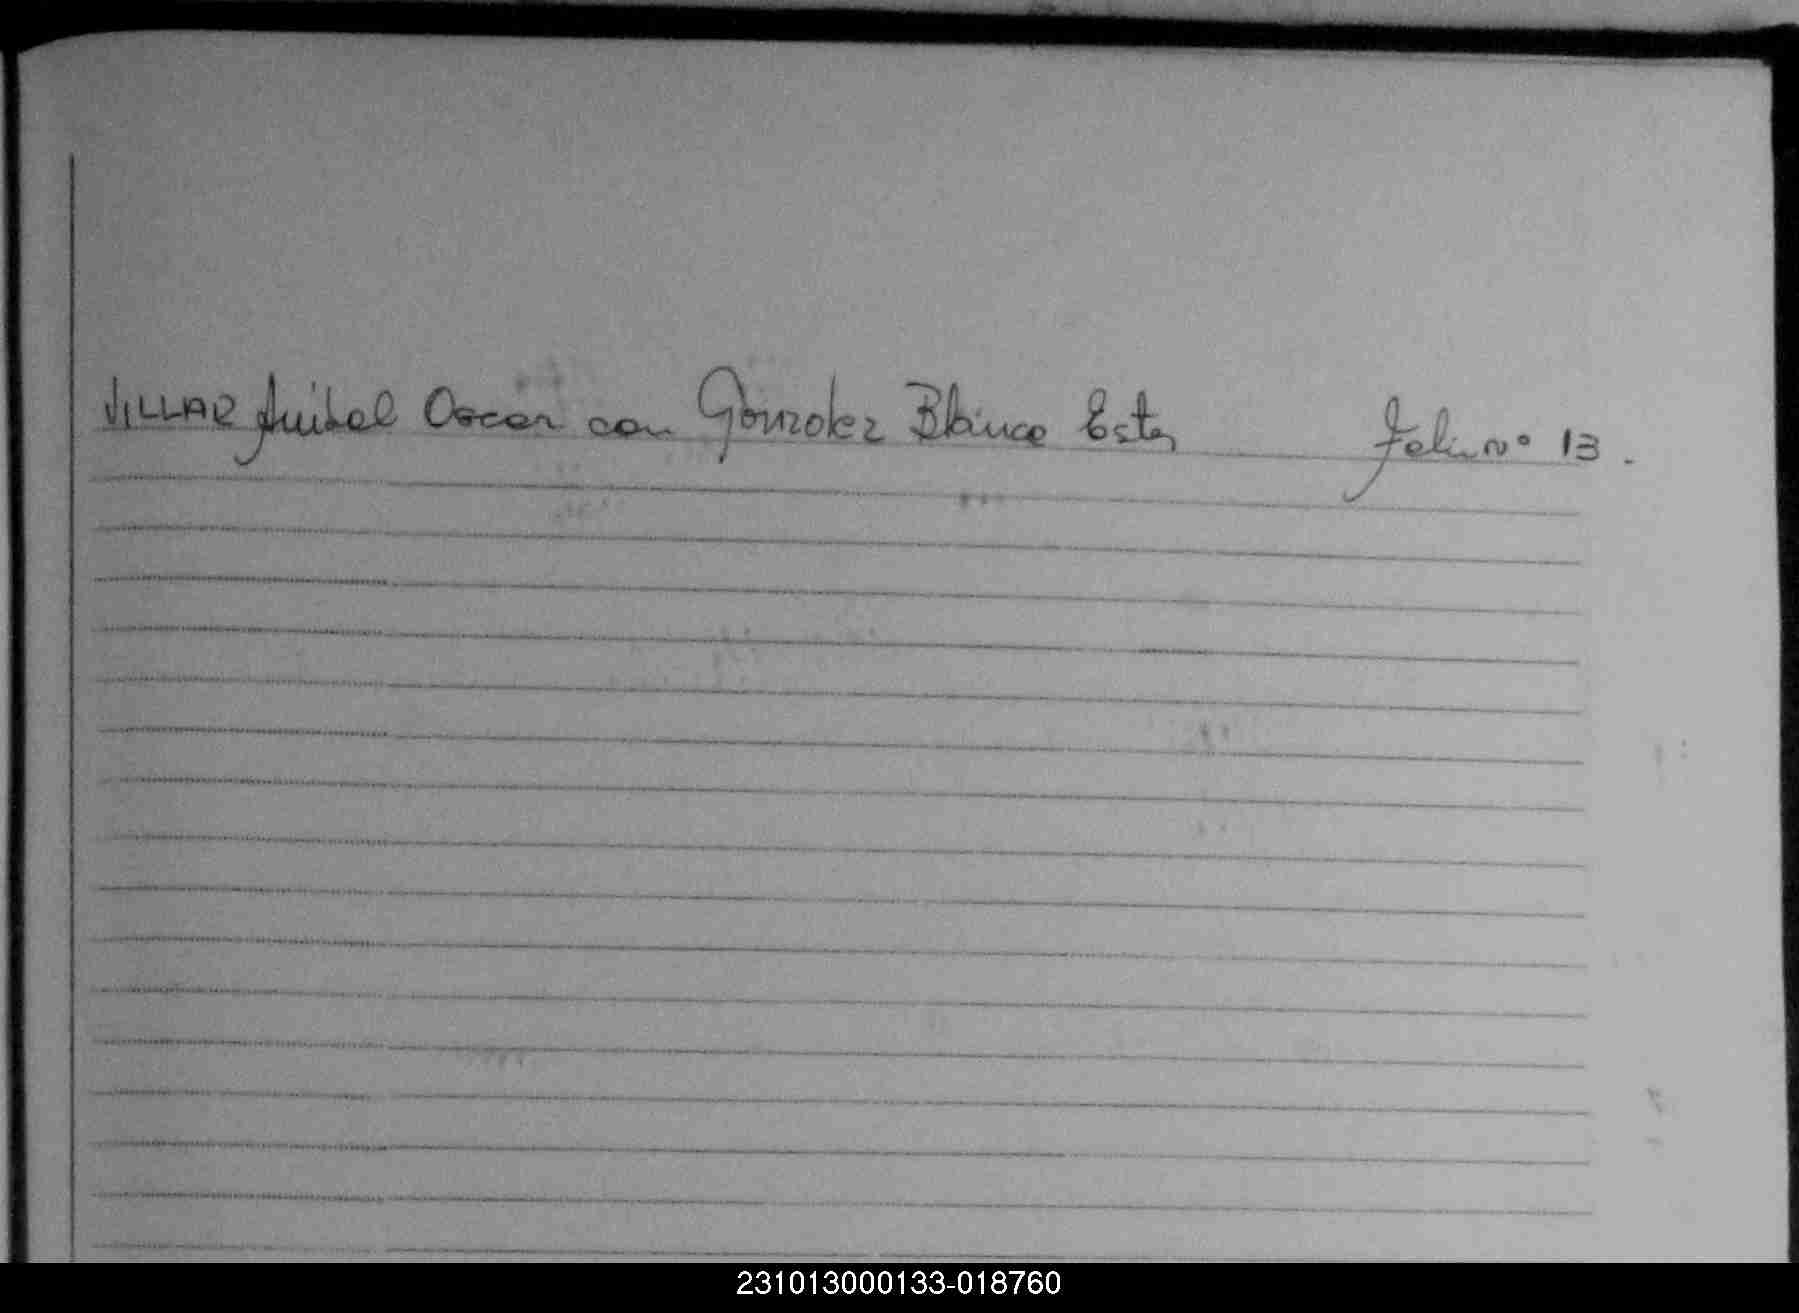 VILLAR Anibal Oscar con Gonzalez Blanca Ester Folio nº 13.
231013000133-018760